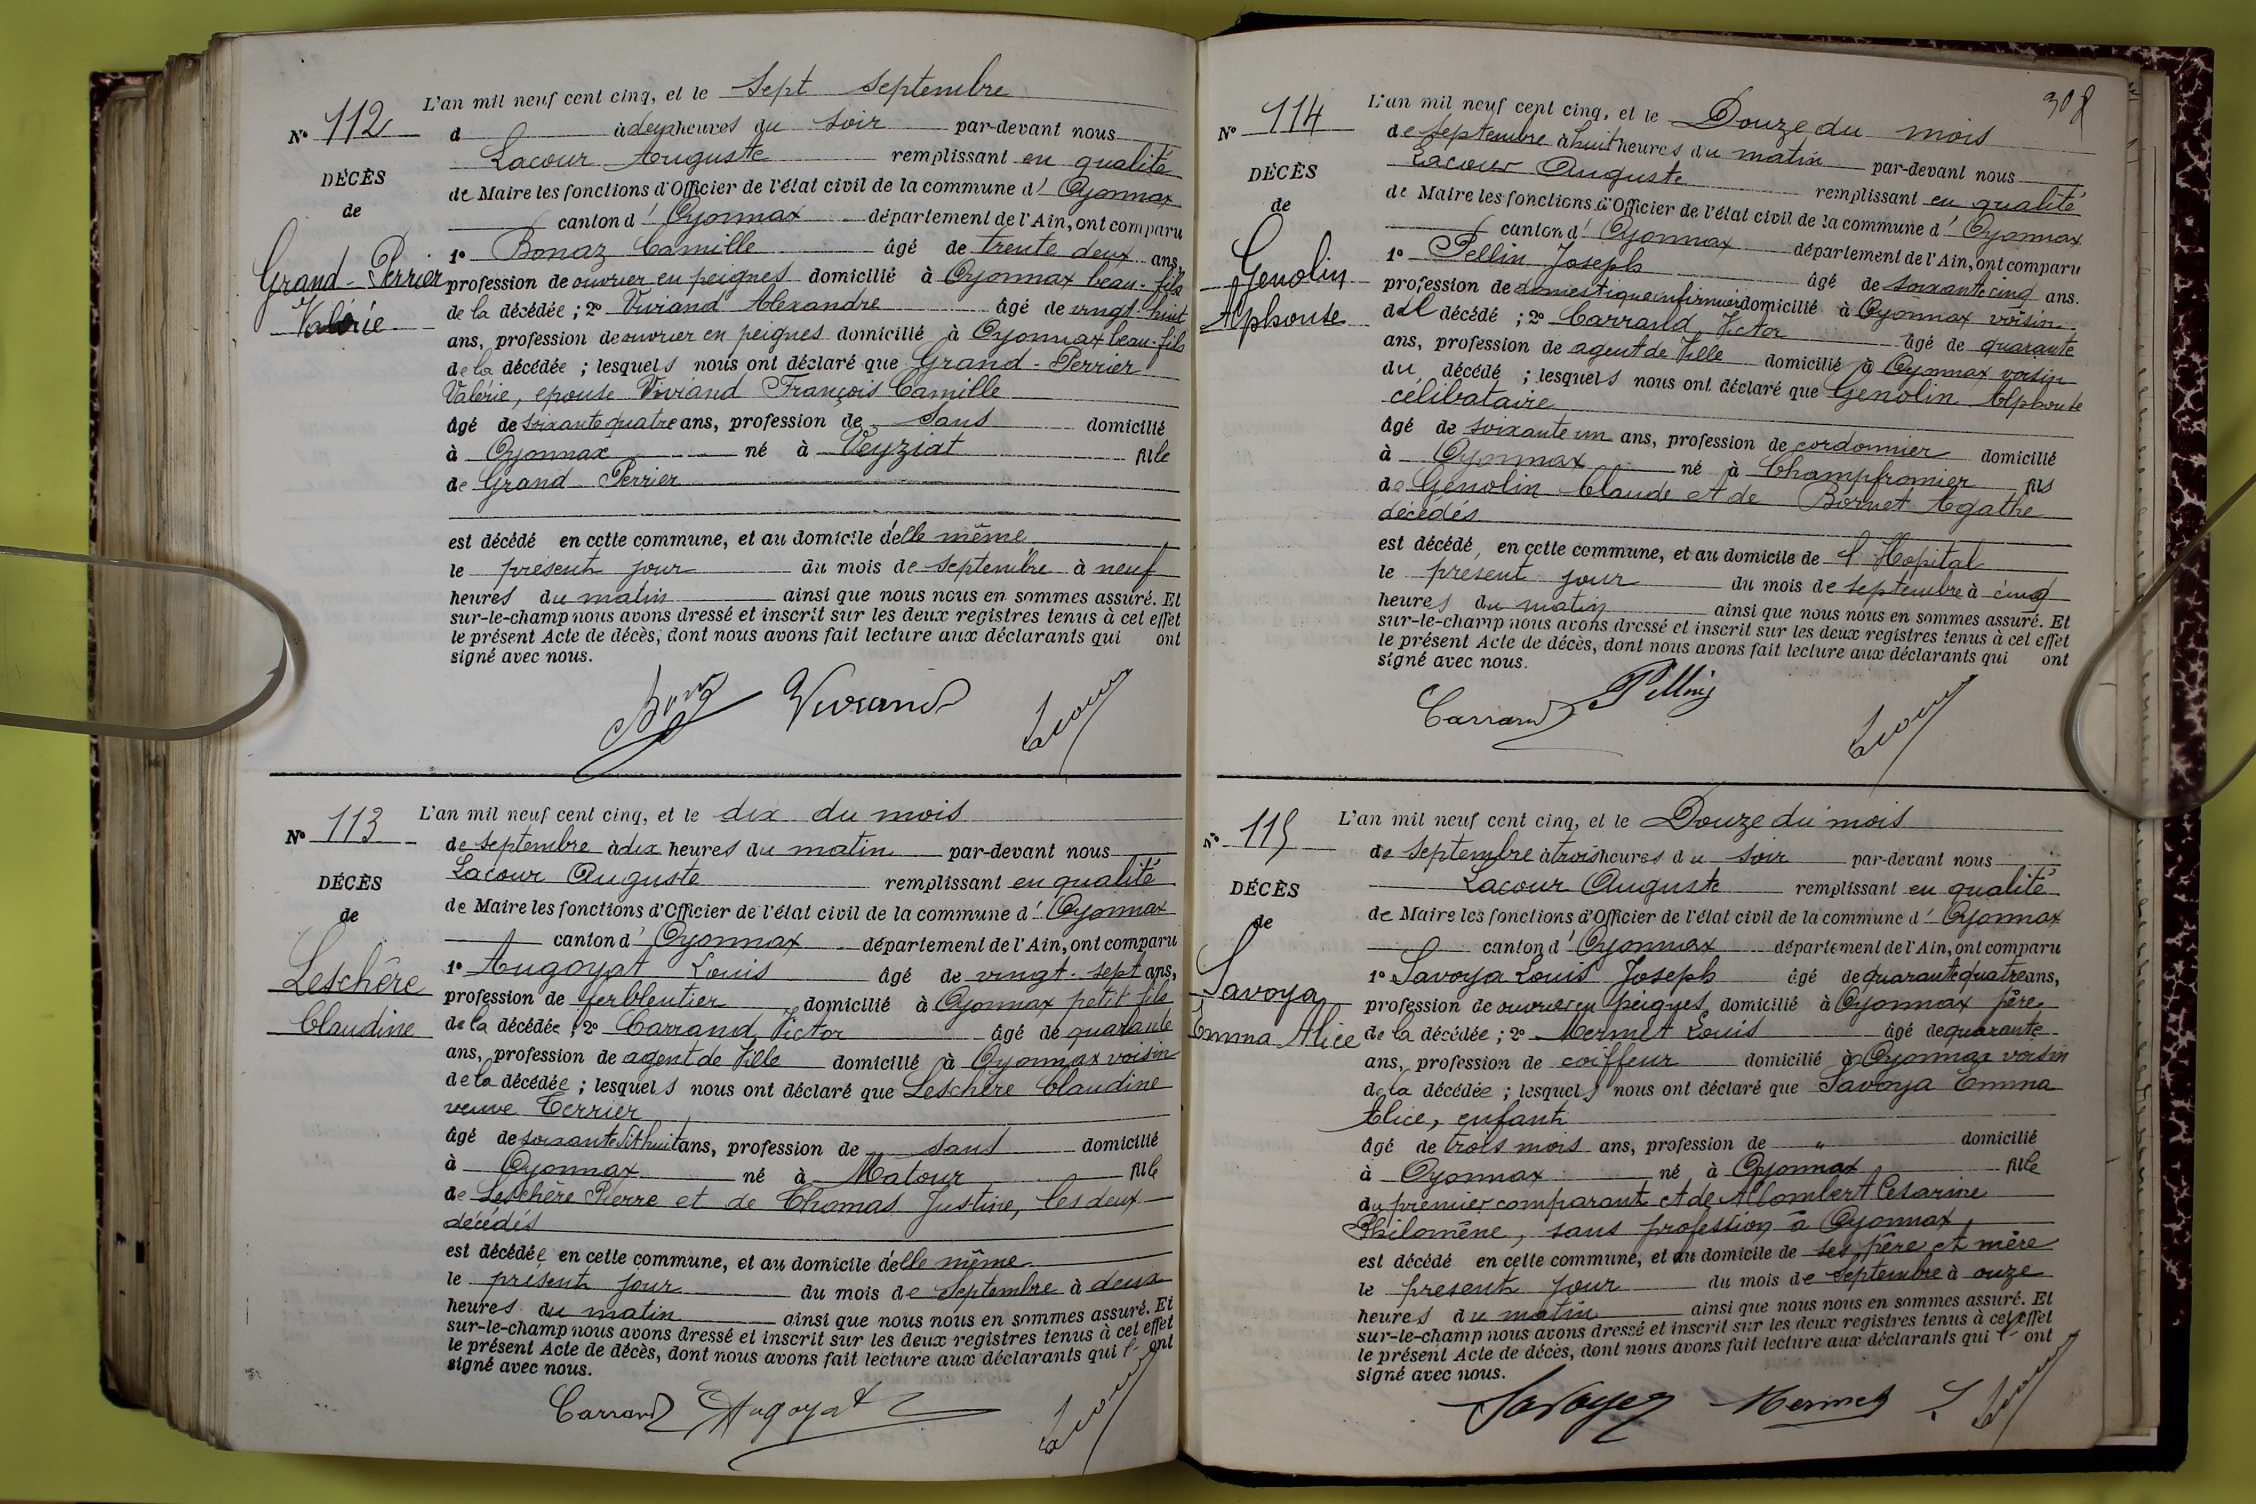 L'an mil neuf cent cinq, et le Sept Septembre
N° 112
d à deux heures du soir par-devant nous
Lacour Auguste remplissant en qualité
DÉCÈS
de Maire les fonctions d'Officier de l'état civil de la commune d' Oyonnax
de
canton d' Oyonnax département de l'Ain, ont comparu
Grand-Perrier
Valérie
1° Bonaz Camille âgé de trente deux ans,
profession de ouvrier en peignes domicilié à Oyonnax beau-fils
de la décédée ; 2° Vivrand Alexandre âgé de vingt-huit
ans, profession de ouvrier en peignes domicilié à Oyonnax beau-fils
de la décédée ; lesquels nous ont déclaré que Grand-Perrier
Valérie, epouse Vivrand François Camille
âgé de soixante quatre ans, profession de Sans domicilié
à Oyonnax né à Veyziat fille
de Grand Perrier
est décédé en cette commune, et au domicile d'elle même
le présent jour du mois de septembre à neuf
heures du matin ainsi que nous nous en sommes assuré. Et
sur-le-champ nous avons dressé et inscrit sur les deux registres tenus à cet effet
le présent Acte de décès, dont nous avons fait lecture aux déclarants qui ont
signé avec nous.
Bonaz Vivrand Lacour
L'an mil neuf cent cinq, et le dix du mois
N° 113
de septembre à dix heures du matin par-devant nous
Lacour Auguste remplissant en qualité
DÉCÈS
de Maire les fonctions d'Officier de l'état civil de la commune d' Oyonnax
de
canton d' Oyonnax département de l'Ain, ont comparu
Leschère
Claudine
1° Augoyat Louis âgé de vingt-sept ans,
profession de ferblentier domicilié à Oyonnax petit fils
de la décédée ; 2° Carrand Victor âgé de quarante
ans, profession de agent de Ville domicilié à Oyonnax voisin
de la décédée ; lesquels nous ont déclaré que Leschère Claudine
veuve Terrier
âgé de soixante dit huit ans, profession de sans domicilié
à Oyonnax né à Matour fille
de Leschère Pierre et de Thomas Justine, les deux
décédés
est décédée en cette commune, et au domicile d'elle même
le présent jour du mois de septembre à deux
heures du matin ainsi que nous nous en sommes assuré. Et
sur-le-champ nous avons dressé et inscrit sur les deux registres tenus à cet effet
le présent Acte de décès, dont nous avons fait lecture aux déclarants qui l' ont
signé avec nous.
Carrand Augoyat Lacour
308
L'an mil neuf cent cinq, et le Douze du mois
N° 114
de septembre à huit heures du matin par-devant nous
Lacour Auguste remplissant en qualité
DÉCÈS
de Maire les fonctions d'Officier de l'état civil de la commune d' Oyonnax
de
canton d' Oyonnax département de l'Ain, ont comparu
Genolin
Alphonse
1° Pellin Joseph âgé de soixante cinq ans.
profession de domestique infirmier domicilié à Oyonnax voisin
del décédé ; 2° Carrand Victor âgé de quarante
ans, profession de agent de Ville domicilié à Oyonnax voisin
du décédé ; lesquels nous ont déclaré que Genolin Alphonse
célibataire
âgé de soixante un ans, profession de cordonnier domicilié
à Oyonnax né à Champfromier fils
de Genolin Claude et de Bornet Agathe
décédés
est décédé en cette commune, et au domicile de l'Hopital
le present jour du mois de septembre à cinq
heures du matin ainsi que nous nous en sommes assuré. Et
sur-le-champ nous avons dressé et inscrit sur les deux registres tenus à cet effet
le présent Acte de décès, dont nous avons fait lecture aux déclarants qui ont
signé avec nous.
Carrand Pellin Lacour
L'an mil neuf cent cinq, et le Douze du mois
N° 115
de septembre à trois heures du soir par-devant nous
Lacour Auguste remplissant en qualité
DÉCÈS
de Maire les fonctions d'Officier de l'état civil de la commune d' Oyonnax
de
canton d' Oyonnax département de l'Ain, ont comparu
Savoya
Emma Alice
1° Savoya Louis Joseph âgé de quarante quatre ans,
profession de ouvrier en peignes domicilié à Oyonnax père
de la décédée ; 2° Mermet Louis âgé de quarante
ans, profession de coiffeur domicilié à Oyonnax voisin
de la décédée ; lesquels nous ont déclaré que Savoya Emma
Alice, enfant
âgé de trois mois ans, profession de " domicilié
à Oyonnax né à Oyonnax fille
du premier comparant et de Allombert Césarine
Philomène, sans profession à Oyonnax,
est décédé en cette commune, et au domicile de ses père et mère
le present jour du mois de Septembre à onze
heures du matin ainsi que nous nous en sommes assuré. Et
sur-le-champ nous avons dressé et inscrit sur les deux registres tenus à cet effet
le présent Acte de décès, dont nous avons fait lecture aux déclarants qui l' ont
signé avec nous.
Savoye Mermet L Lacour